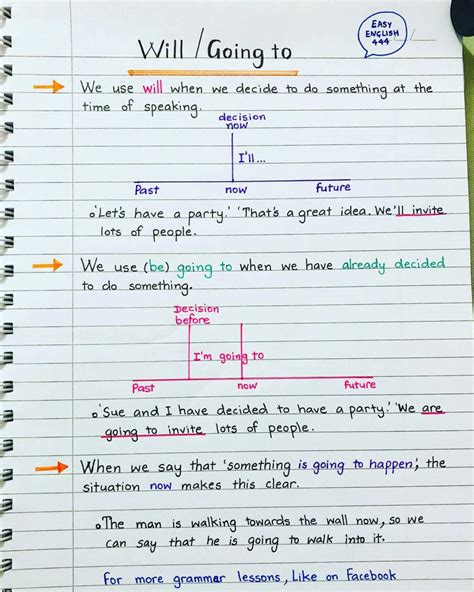 EASY
ENGLISH
444
Will / Going to
We use will when we decide to do something at the
time of speaking.
decision
now
I'll...
Past now future
'Let's have a party.' 'That's a great idea. We'll invite
lots of people.
We use (be) going to when we have already decided
to do something.
Decision
before
I'm going to
Past now future
'Sue and I have decided to have a party.' 'We are
going to invite lots of people.
When we say that 'something is going to happen', the
situation now makes this clear.
The man is walking towards the wall now, so we
can say that he is going to walk into it.
For more grammar lessons, Like on Facebook